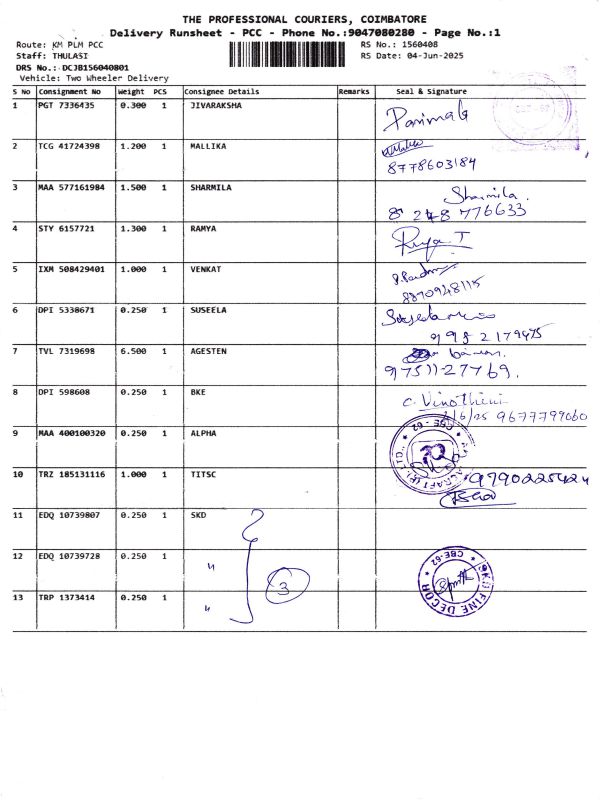 THE PROFESSIONAL COURIERS, COIMBATORE
Delivery Runsheet - PCC - Phone No.:9047080280 - Page No.:1
Route: KM PLM PCC
RS No.: 1560408
Staff: THULASI
RS Date: 04-Jun-2025
DRS No.: DCJB156040801
Vehicle: Two Wheeler Delivery
S No Consignment No Weight PCS Consignee Details Remarks Seal & Signature
1 PGT 7336435 0.300 1 JIVARAKSHA
2 TCG 41724398 1.200 1 MALLIKA
8778603184
3 MAA 577161984 1.500 1 SHARMILA Sharmila.
8 248 776633
4 STY 6157721 1.300 1 RAMYA
5 IXM 508429401 1.000 1 VENKAT
8870948115
6 DPI 5338671 0.250 1 SUSEELA
9982179475
7 TVL 7319698 6.500 1 AGESTEN
9751127769.
8 DPI 598608 0.250 1 BKE C. Vinothini
4/6/25 9677799060
9 MAA 400100320 0.250 1 ALPHA CBE - 62
10 TRZ 185131116 1.000 1 TITSC 9790225424
11 EDQ 10739807 0.250 1 SKD
12 EDQ 10739728 0.250 1 " 3 SKD FINE DECOR CBE-62
13 TRP 1373414 0.250 1 "